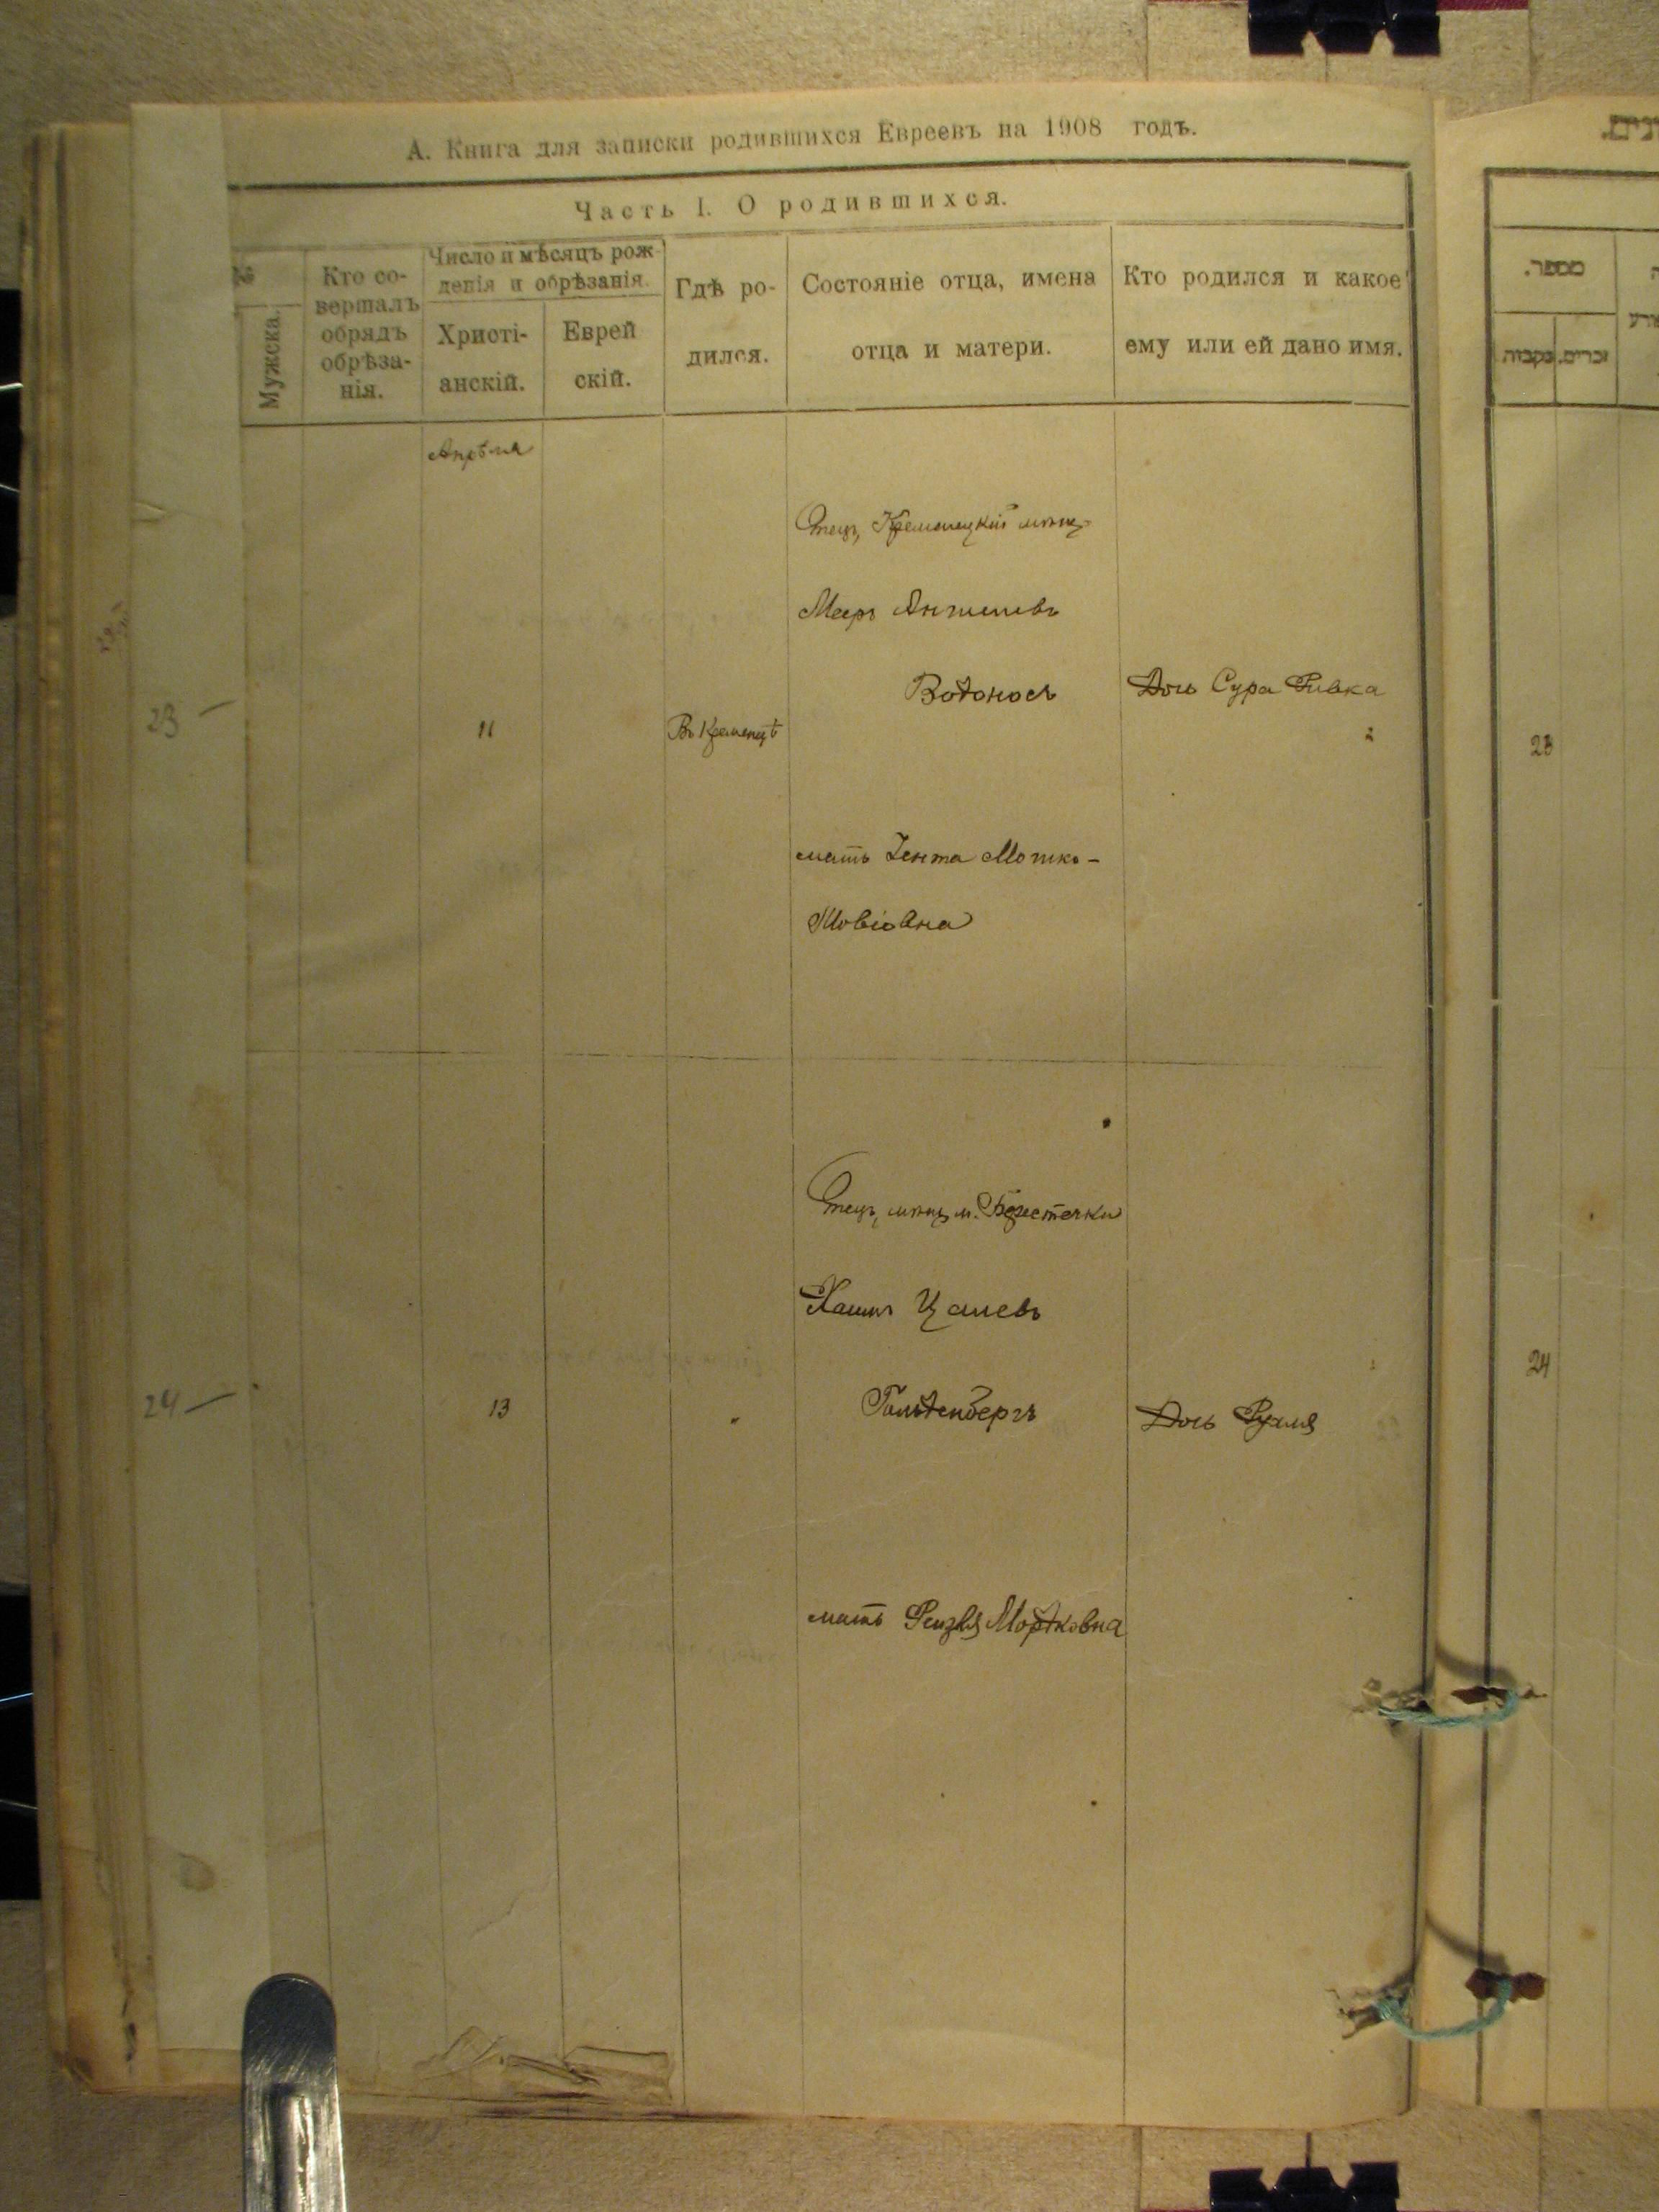 А. Книга для записки родившихся Евреевъ на 1908 годъ.
Часть I. О родившихся.
№
Мужска.
Кто со-
вершалъ
обрядъ
обрѣза-
нія.
Число и мѣсяцъ рож-
денія и обрѣзанія.
Христі-
анскій.
Еврей
скій.
Гдѣ ро-
дился.
Состояніе отца, имена
отца и матери.
Кто родился и какое
ему или ей дано имя.
מספר.
נקבות
זכרים.
Апрѣля
23 —
11
Въ Кременцѣ
Отецъ, Кременецкій мѣщ.
Мееръ
Водоносъ
мать Зента Мошко-
Товіовна
Дочь Сура Ривка
23
24 —
13
"
Отецъ, мѣщ. м. Берестечки
Хаимъ Цалевъ
Гольденбергъ
мать Рейзя Мордковна
Дочь Рухля
24